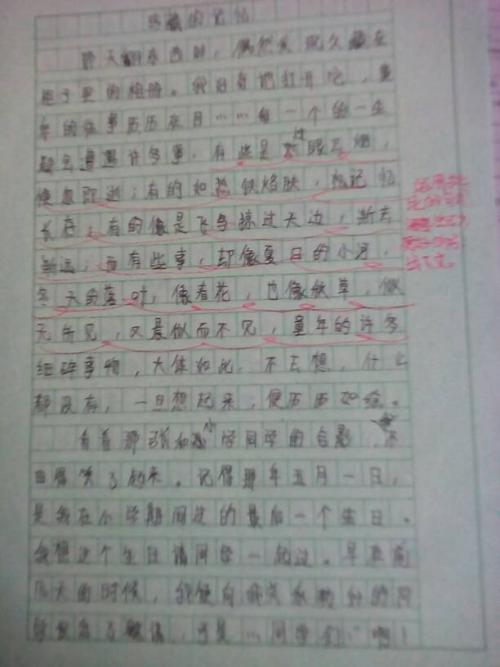 珍藏的记忆
昨天翻东西时，偶然发现久藏在
柜子里的相册。我好奇地打开它，童
年的往事历历在目……每一个的一生
都会遭遇许多事，有些是过眼云烟，
倏忽即逝；有的如热铁烙肤，记忆
长存；有的像是飞鸟掠过天边，渐去
渐远；而有些事，却像夏日的小河、
冬天的落叶，像春花，也像秋草，似
无所见，又是似而不见，童年的许多
细碎事物，大体如此，不去想，什么
都没有，一旦想起来，便历历如绘。
看着那张和小学同学的合影，不
由得笑了起来。记得那年五月一日，
是我在小学期间过的最后一个生日。
我想这个生日请同学一起过。早在前
几天的时候，我便向我关系较好的同
学发出了邀请，于是…同学们："啊！